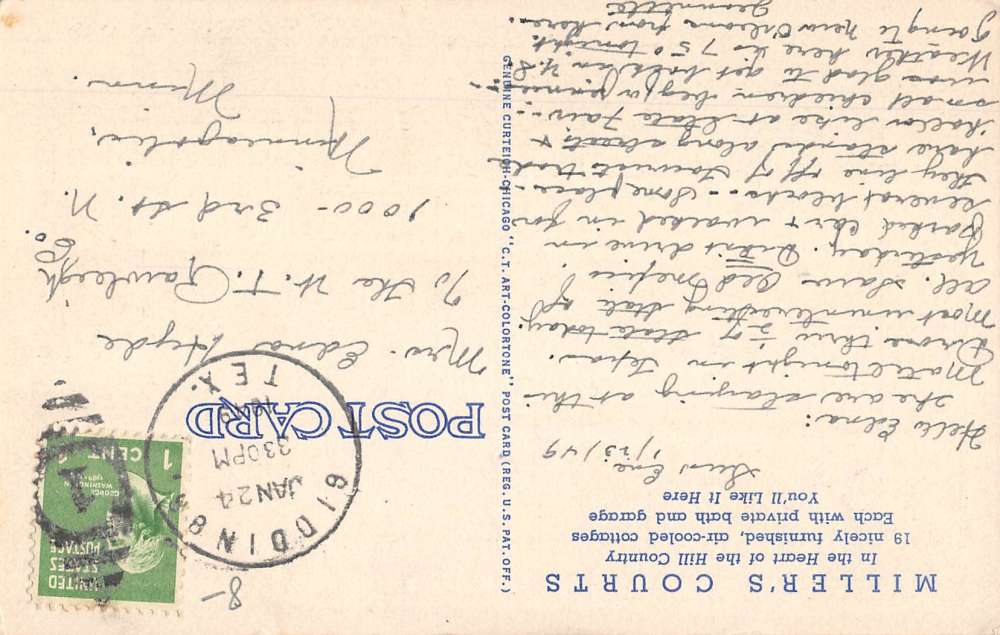 MILLER'S COURTS
In the Heart of the Hill Country
19 nicely furnished, air-cooled cottages
Each with private bath and garage
You'll Like It Here
Sun. Eve.
1/23/49
Hello Edna:
We are staying at this
Motel tonight in Texas.
Drove thru 1/2 of state today.
Most uninteresting state of
all. Saw Old Mexico
yesterday. Didn't drive in
parked car & walked in for
several blocks - Some place -
they live off of tourist trade
have stands along streets &
holler like at State Fair -
small children beg for pennies -
was glad to get back in U.S.
Weather here is 75° tonight
Going to New Orleans from here.
GENUINE CURTEICH-CHICAGO "C.T. ART-COLORTONE" POST CARD (REG. U.S. PAT. OFF.)
POST CARD
GIDDINGS
JAN 24
330 PM
1949
TEX.
8-
UNITED
STATES
POSTAGE
GEORGE
WASHINGTON
1 CENT
Mrs. Edna Hyde
% The W. T. Rawleigh
Co.
1000 - 3rd St. N.
Minneapolis,
Minn